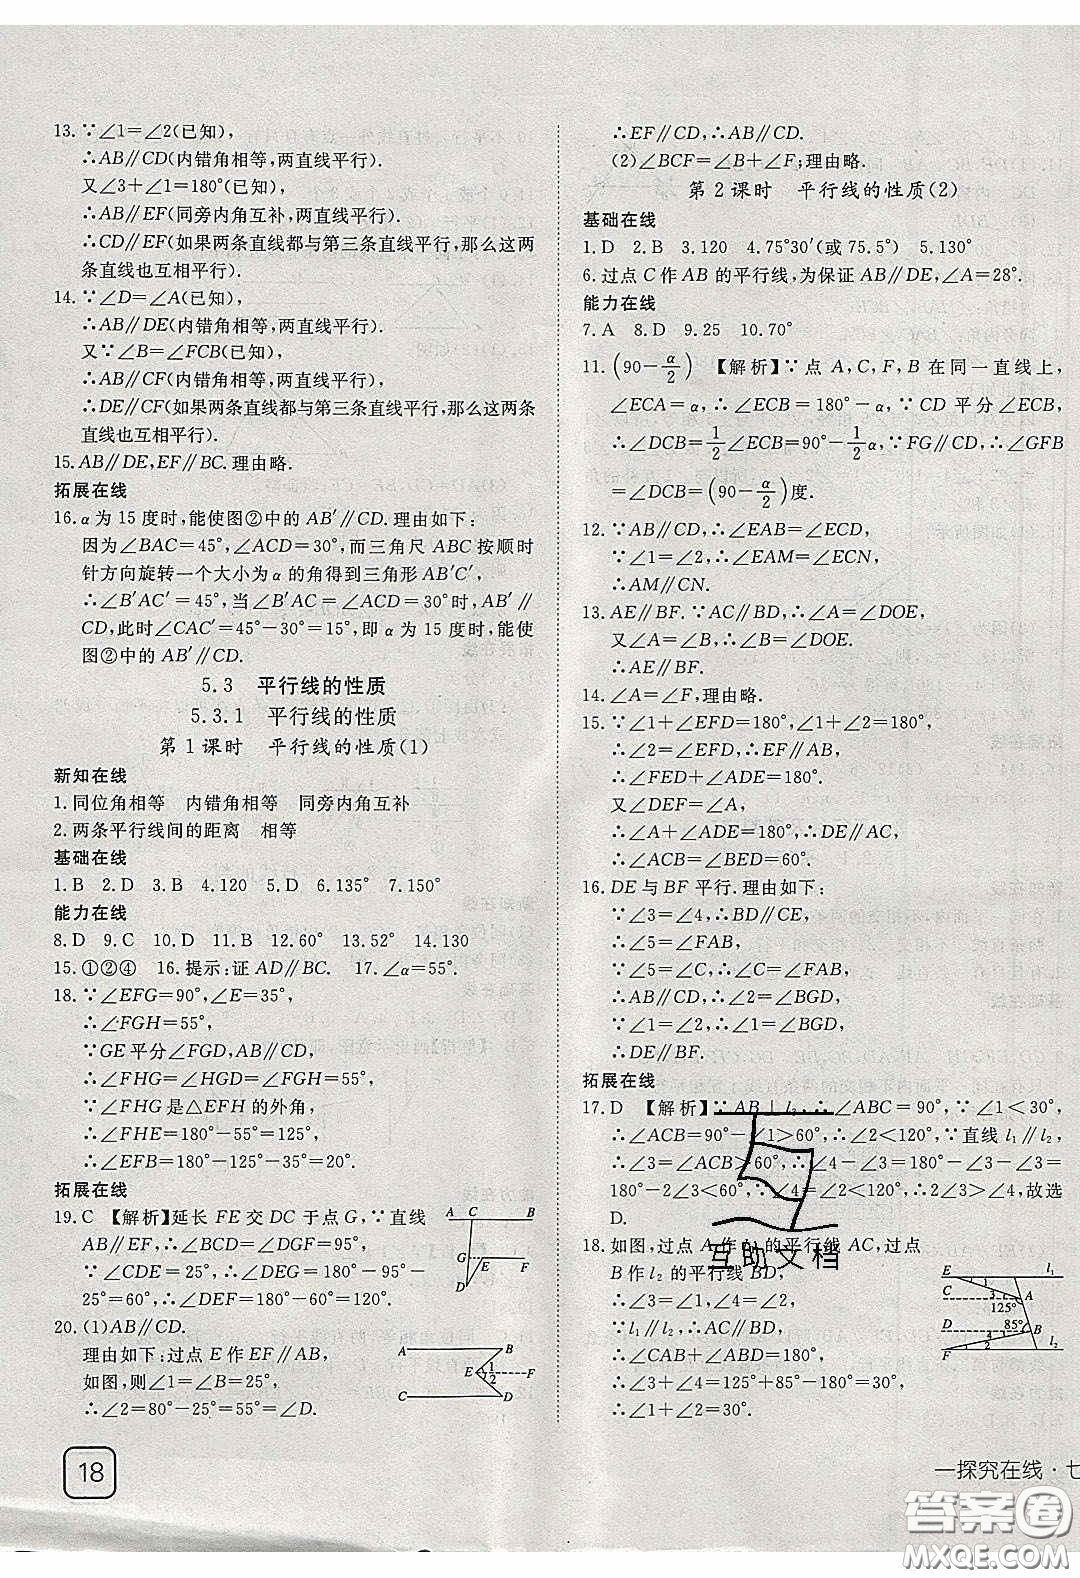 13.∵∠1=∠2(已知),
∴AB∥CD(内错角相等,两直线平行).
又∠3+∠1=180°(已知),
∴AB∥EF(同旁内角互补,两直线平行).
∴CD∥EF(如果两条直线都与第三条直线平行,那么这两
条直线也互相平行).
14.∵∠D=∠A(已知),
∴AB∥DE(内错角相等,两直线平行).
又∵∠B=∠FCB(已知),
∴AB∥CF(内错角相等,两直线平行).
∴DE∥CF(如果两条直线都与第三条直线平行,那么这两条
直线也互相平行).
15.AB∥DE,EF∥BC.理由略.
拓展在线
16.α为15度时,能使图②中的AB′∥CD.理由如下:
因为∠BAC=45°,∠ACD=30°,而三角尺ABC按顺时
针方向旋转一个大小为α的角得到三角形AB′C′,
∴∠B′AC′=45°,当∠B′AC=∠ACD=30°时,AB′∥
CD,此时∠CAC′=45°-30°=15°,即α为15度时,能使
图②中的AB′∥CD.
5.3 平行线的性质
5.3.1 平行线的性质
第1课时 平行线的性质(1)
新知在线
1.同位角相等 内错角相等 同旁内角互补
2.两条平行线间的距离 相等
基础在线
1.B 2.D 3.B 4.120 5.D 6.135° 7.150°
能力在线
8.D 9.C 10.D 11.B 12.60° 13.52° 14.130
15.①②④ 16.提示:证AD∥BC. 17.∠α=55°.
18.∵∠EFG=90°,∠E=35°,
∴∠FGH=55°,
∵GE平分∠FGD,AB∥CD,
∴∠FHG=∠HGD=∠FGH=55°,
∵∠FHG是△EFH的外角,
∴∠FHE=180°-55°=125°,
∴∠EFB=180°-125°-35°=20°.
拓展在线
19.C 【解析】延长FE交DC于点G,∵直线
AB∥EF,∴∠BCD=∠DGF=95°,
∵∠CDE=25°,∴∠DEG=180°-95°-
25°=60°,∴∠DEF=180°-60°=120°.
A C B
G E F
D
20.(1)AB∥CD.
理由如下:过点E作EF∥AB,
如图,则∠1=∠B=25°,
∴∠2=80°-25°=55°=∠D.
A B
E 1 2 F
C D
18
∴EF∥CD,∴AB∥CD.
(2)∠BCF=∠B+∠F;理由略.
第2课时 平行线的性质(2)
基础在线
1.D 2.B 3.120 4.75°30′(或75.5°) 5.130°
6.过点C作AB的平行线,为保证AB∥DE,∠A=28°.
能力在线
7.A 8.D 9.25 10.70°
11.(90-α/2) 【解析】∵点A,C,F,B在同一直线上,
∠ECA=α,∴∠ECB=180°-α,∵CD平分∠ECB,
∴∠DCB=1/2∠ECB=90°-1/2α,∵FG∥CD,∴∠GFB
=∠DCB=(90-α/2)度.
12.∵AB∥CD,∴∠EAB=∠ECD,
∵∠1=∠2,∴∠EAM=∠ECN,
∴AM∥CN.
13.AE∥BF.∵AC∥BD,∴∠A=∠DOE,
又∠A=∠B,∴∠B=∠DOE.
∴AE∥BF.
14.∠A=∠F,理由略.
15.∵∠1+∠EFD=180°,∠1+∠2=180°,
∴∠2=∠EFD,∴EF∥AB,
∴∠FED+∠ADE=180°.
又∠DEF=∠A,
∴∠A+∠ADE=180°,∴DE∥AC,
∴∠ACB=∠BED=60°.
16.DE与BF平行.理由如下:
∵∠3=∠4,∴BD∥CE,
∴∠5=∠FAB,
∵∠5=∠C,∴∠C=∠FAB,
∴AB∥CD,∴∠2=∠BGD,
∵∠1=∠2,∴∠1=∠BGD,
∴DE∥BF.
拓展在线
17.D 【解析】∵AB⊥l₃,∴∠ABC=90°,∵∠1<30°,
∴∠ACB=90°-∠1>60°,∴∠2<120°,∵直线l₁∥l₂,
∴∠3=∠ACB>60°,∴∠4=∠5=
180°-∠3<60°,∵∠4=∠2<120°,∴∠3>∠4,故选
D.
18.如图,过点A作l₁的平行线AC,过点
B作l₂的平行线BD,
∴∠3=∠1,∠4=∠2,
∵l₁∥l₂,∴AC∥BD,
∴∠CAB+∠ABD=180°,
∴∠3+∠4=125°+85°-180°=30°,
∴∠1+∠2=30°.
E l₁
C 3 A
125°
85°
D 4 B
F 2 l₂
互助文档
一探究在线·七
答案圈
MXQE.COM